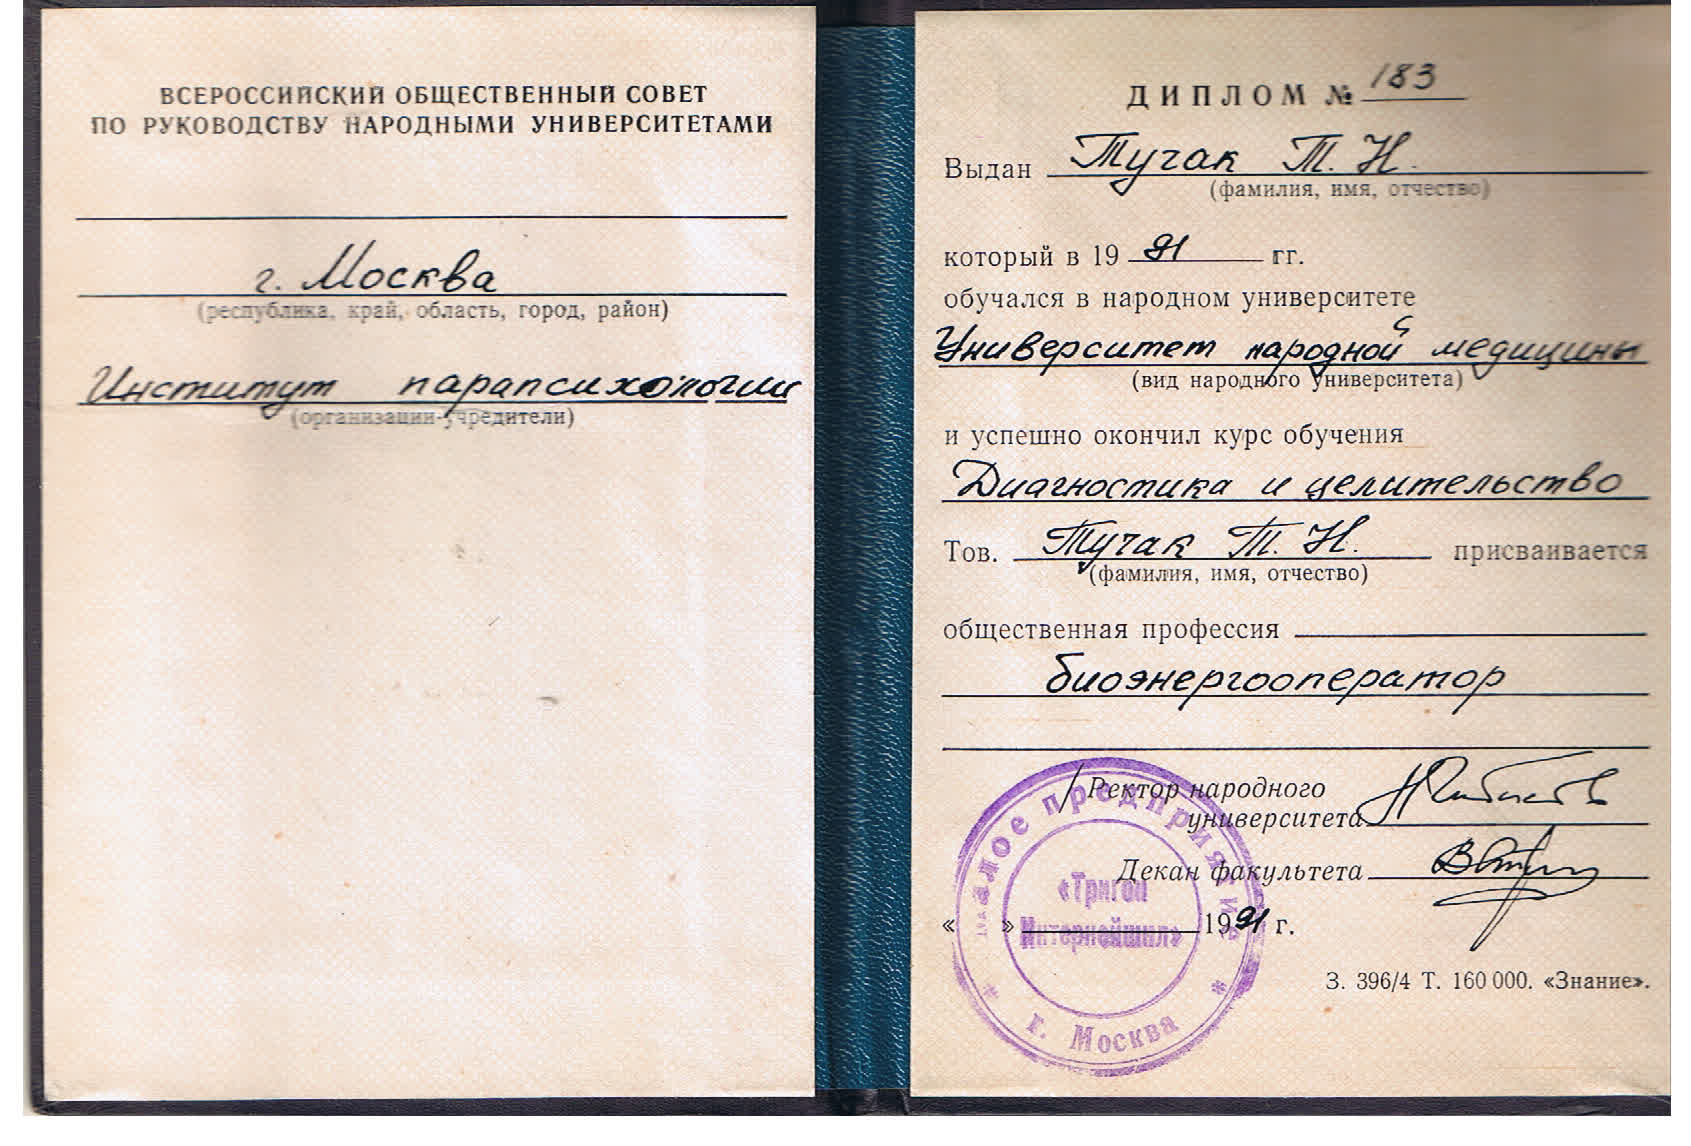 ВСЕРОССИЙСКИЙ ОБЩЕСТВЕННЫЙ СОВЕТ
ПО РУКОВОДСТВУ НАРОДНЫМИ УНИВЕРСИТЕТАМИ
г. Москва
(республика, край, область, город, район)
Институт парапсихологии
(организации-учредители)
ДИПЛОМ № 183
Выдан Тучак Т. Н.
(фамилия, имя, отчество)
который в 19 91 гг.
обучался в народном университете
Университет народной медицины
(вид народного университета)
и успешно окончил курс обучения
Диагностика и целительство
Тов. Тучак Т. Н. присваивается
(фамилия, имя, отчество)
общественная профессия
биоэнергооператор
Ректор народного
университета
Декан факультета
« » 1991 г.
Малое предприятие
«Тригон
Интернейшнл»
г. Москва
З. 396/4 Т. 160 000. «Знание».